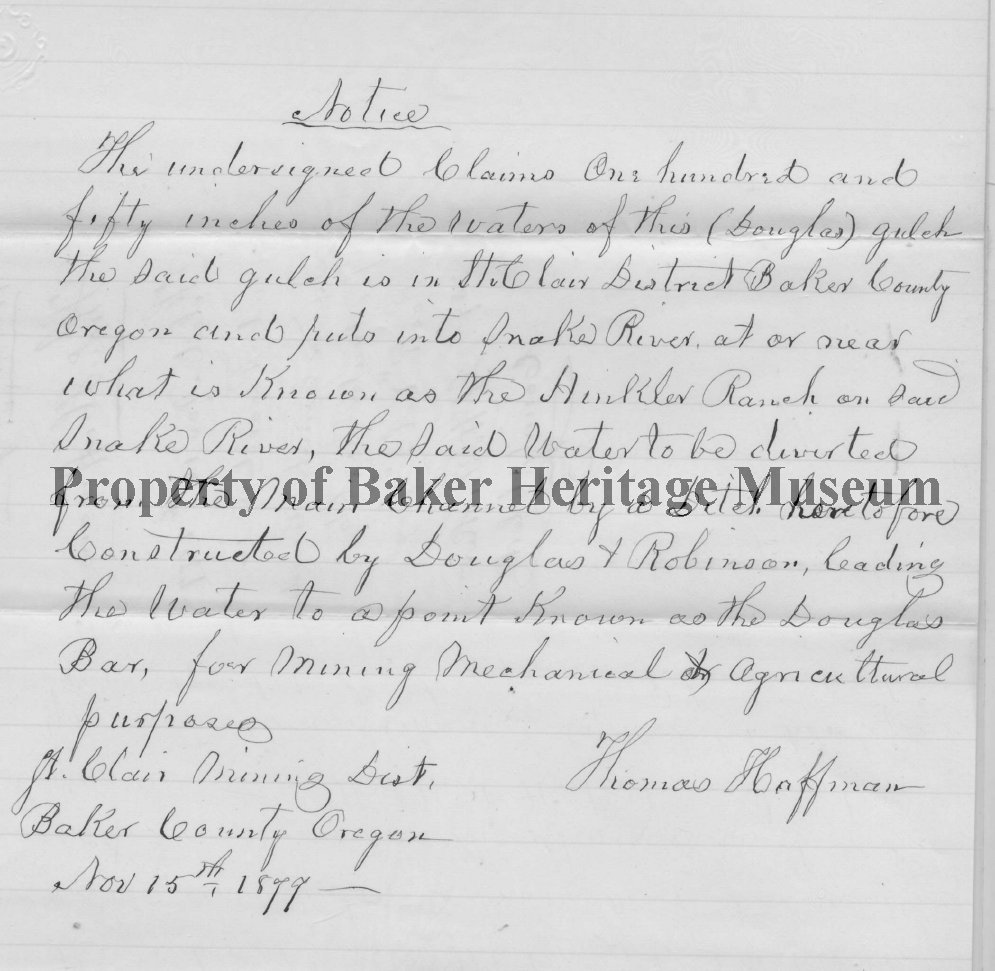 Notice
The undersigned Claims One hundred and
fifty inches of the waters of this (Douglas) gulch
the said gulch is in St. Clair District Baker County
Oregon and puts into Snake River, at or near
what is Known as the Hinkler Ranch on said
Snake River, the said Water to be diverted
Property of Baker Heritage Museum
from the Main Channel by a Ditch heretofore
Constructed by Douglas & Robinson, leading
the Water to a point Known as the Douglas
Bar, for Mining Mechanical or Agricultural
purposes
St. Clair Mining Dist.
Thomas Hoffman
Baker County Oregon
Nov 15th, 1879